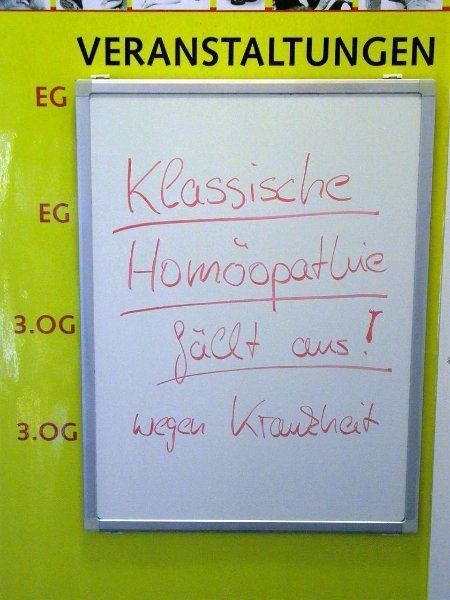 VERANSTALTUNGEN
EG
EG
3.OG
3.OG
Klassische
Homöopathie
fällt aus!
wegen Krankheit